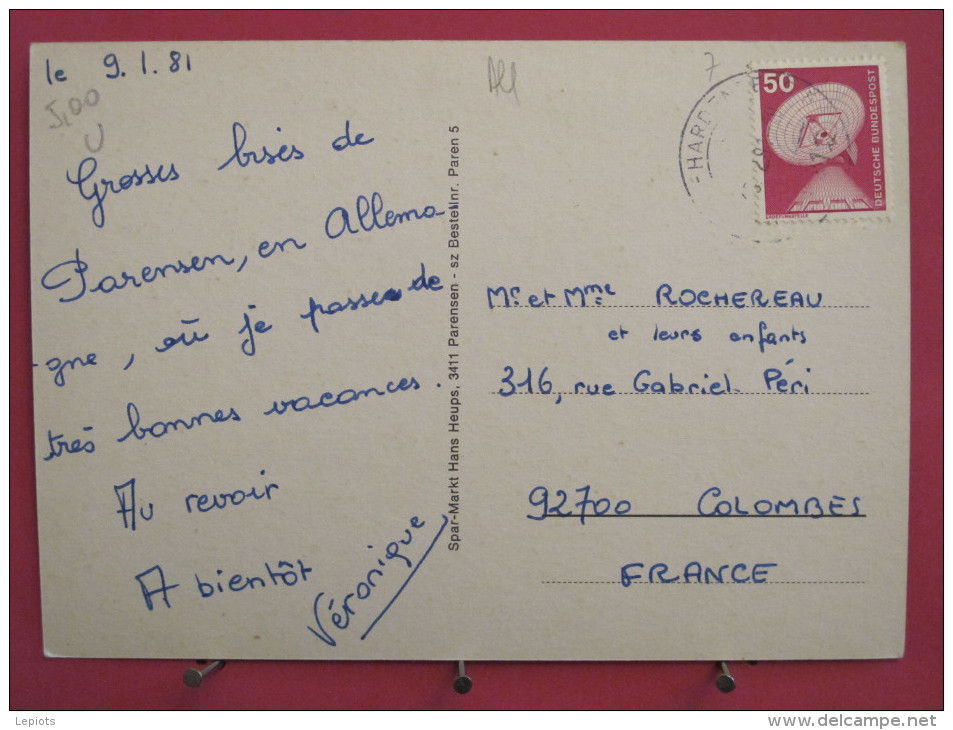 le 9.1.81
5,00
U
All
7
Grosses bises de
Parensen, en Allema-
-gne, où je passe de
très bonnes vacances.
Au revoir
A bientôt
Véronique
Spar-Markt Hans Heups, 3411 Parensen - sz Bestellnr. Paren 5
50
DEUTSCHE BUNDESPOST
Mr et Mme ROCHEREAU
et leurs enfants
316, rue Gabriel Péri
92700 COLOMBES
FRANCE
Lepiots
www.delcampe.net